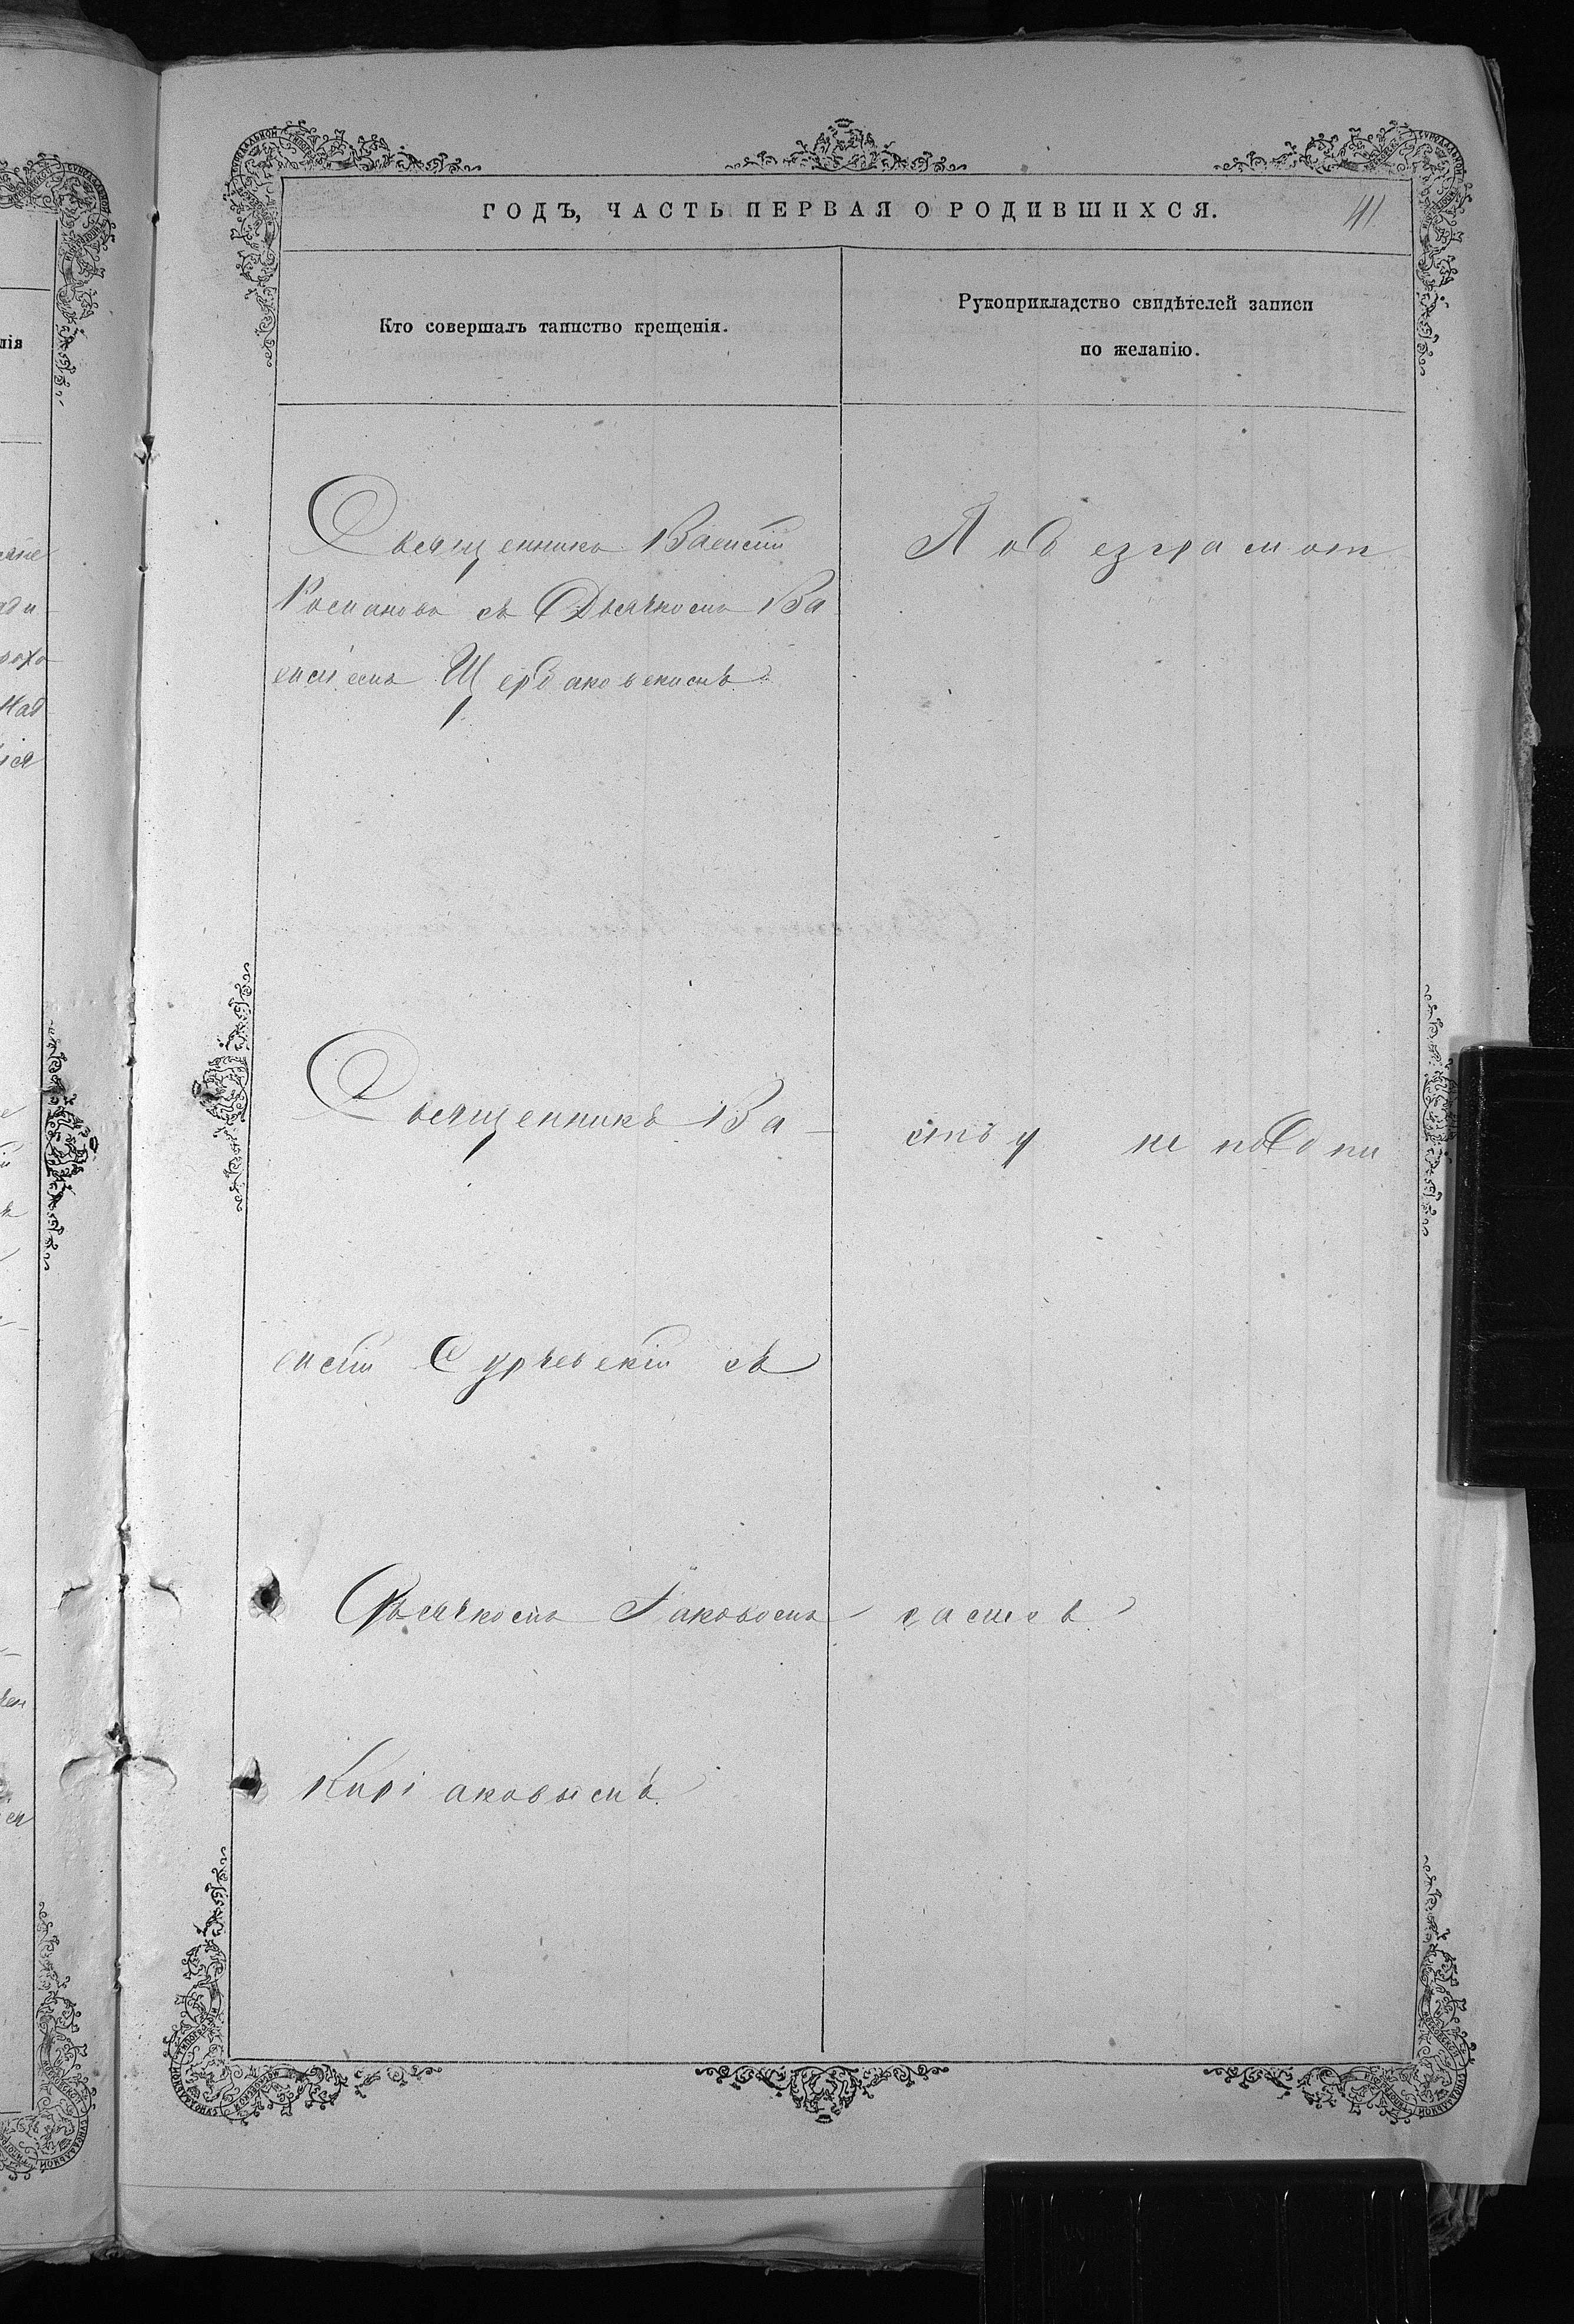 ГОДЪ, ЧАСТЬ ПЕРВАЯ О РОДИВШИХСЯ.
41.
Кто совершалъ таинство крещенія.
Рукоприкладство свидѣтелей записи
по желанію.
Священникъ Василій
Романовъ съ Дьячкомъ Ва
силіемъ Щербаковскимъ
По безграмот
Священникъ Ва-
силій Сурьевскій съ
Дьячкомъ Іаковомъ
Киріаковымъ
ству не подпи
сались